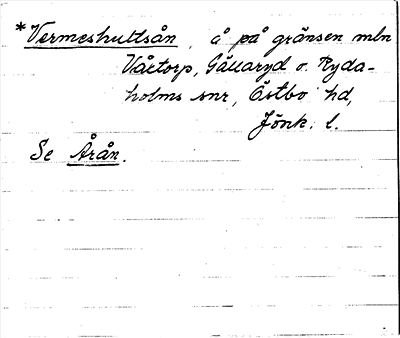 *Vermeshultsån, å på gränsen mln
Våctorp, Gällaryd o. Ryda-
holms snr, Östbo hd,
Jönk. l.
Se Årån.